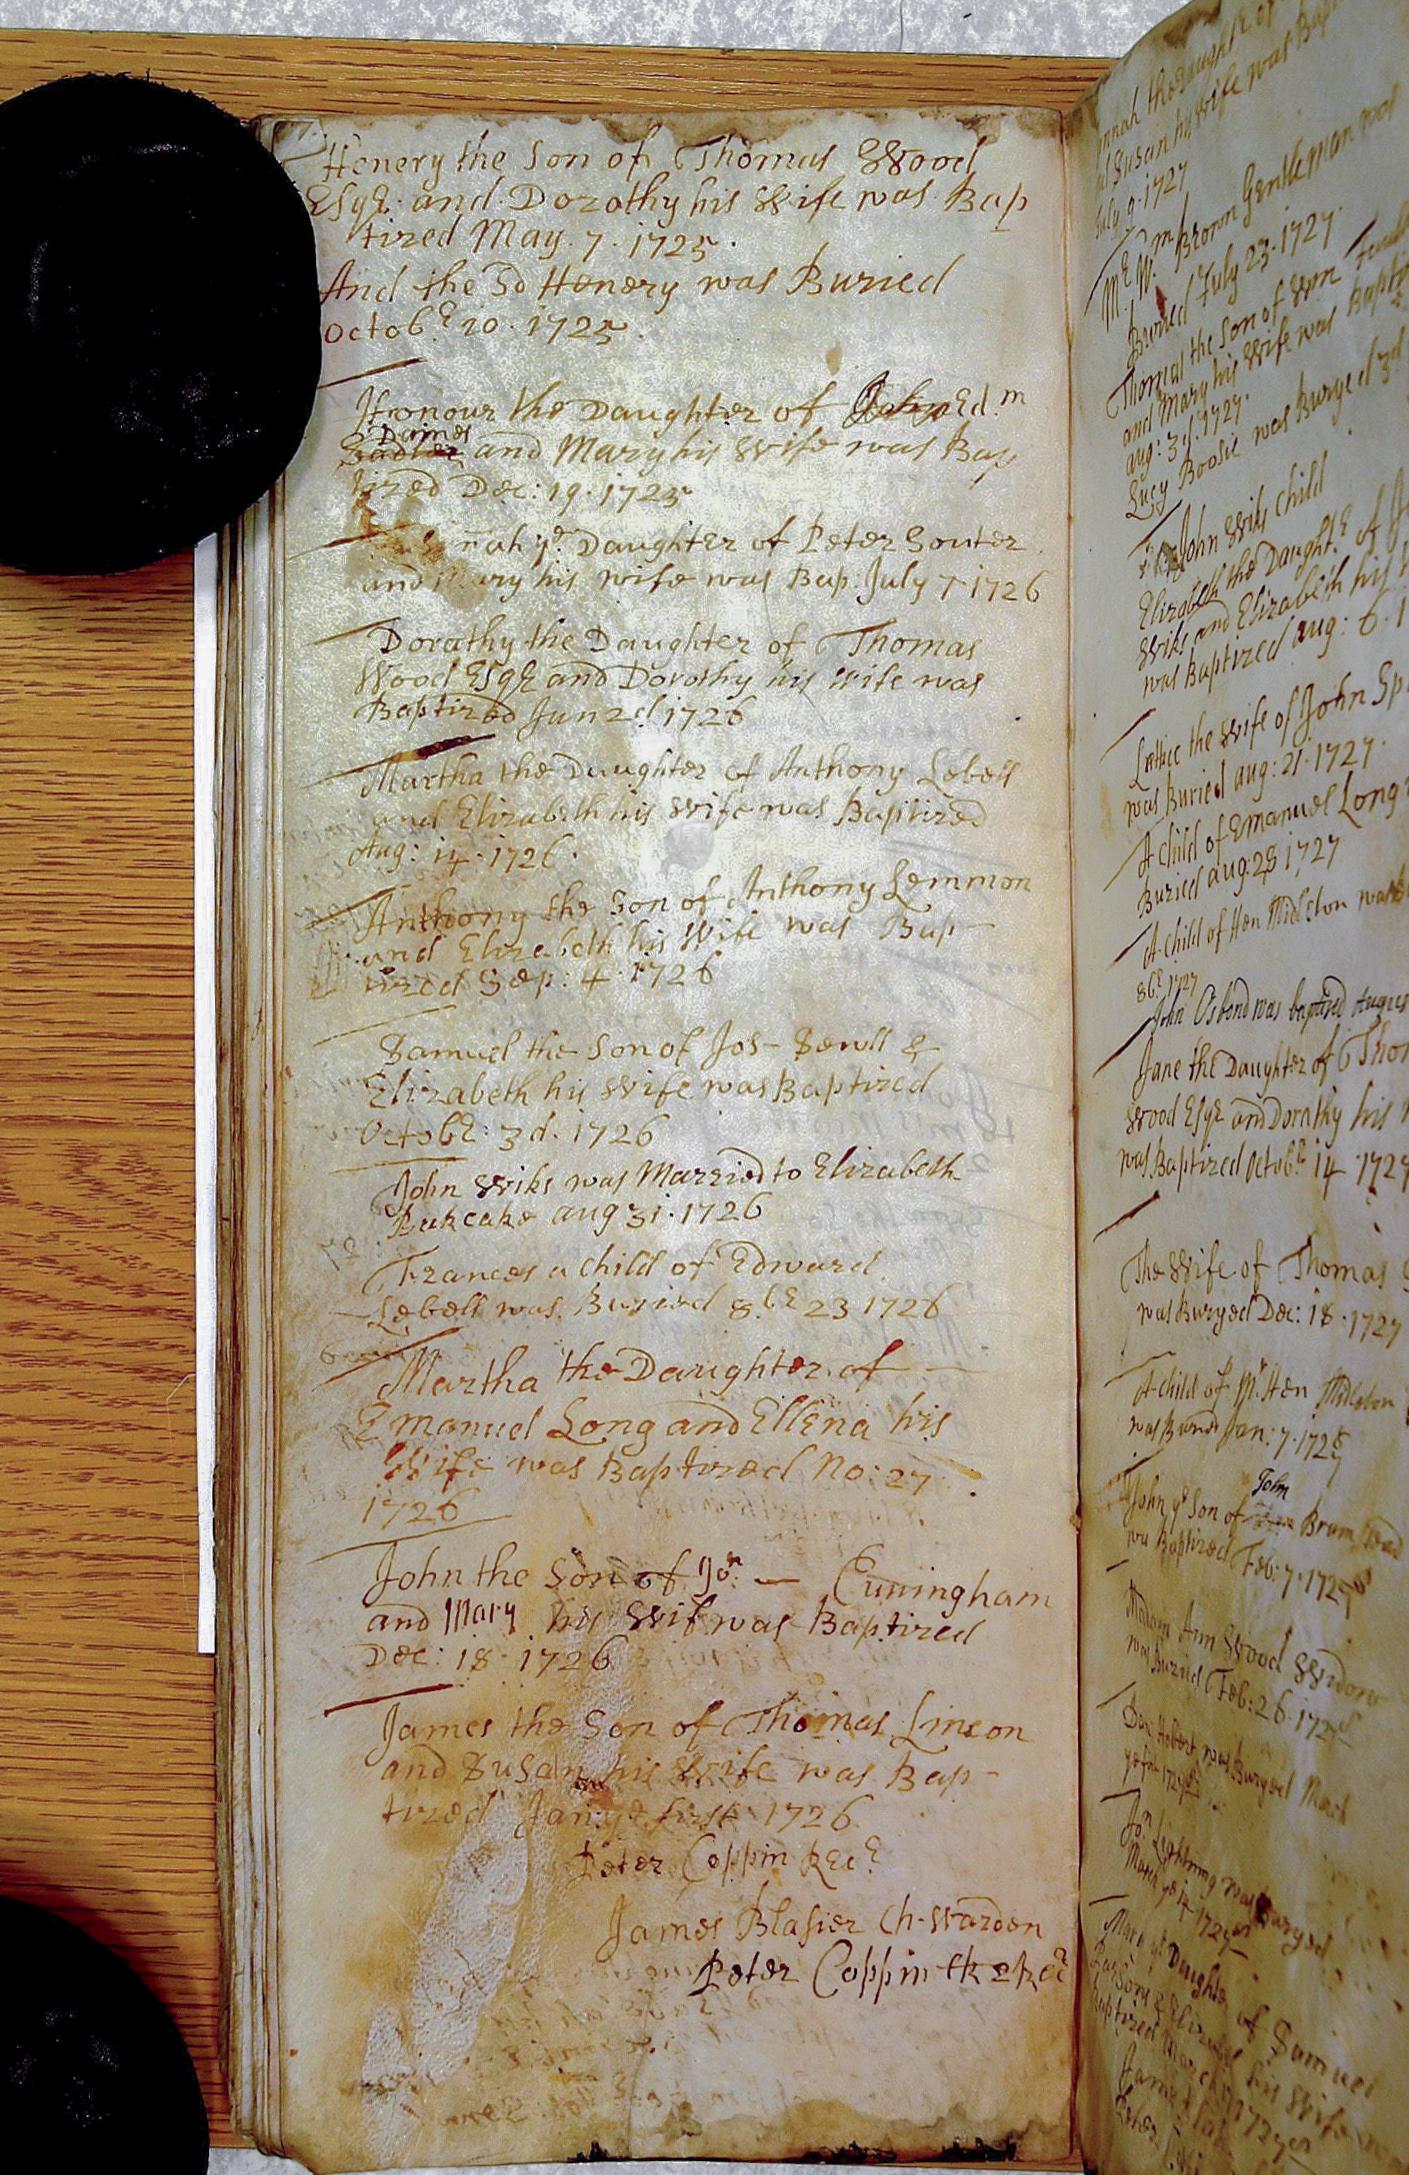 Henery the Son of Thomas Wood
Esqr. and Dorothy his Wife was Bap
tized May. 7. 1725.
And the Sd Henery was Buried
Octobr 10. 1725
Honour the Daughter of John Ed.m
Daines
Sadler and Mary his Wife was Bap
tized Dec: 19. 1725
nah ye Daughter of Peter Souter
and Mary his wife was Bap: July 7. 1726
Dorothy the Daughter of Thomas
Wood Esqr and Dorothy his Wife was
Baptized Jun 2d 1726
Martha the Daughter of Anthony Lebell
and Elizabeth his Wife was Baptized
Aug: 14. 1726.
Anthony the Son of Anthony Lemmon
and Elizabeth his Wife was Bap-
tized Sep: 4. 1726
Samuel the Son of Jos- Sewll &
Elizabeth his Wife was Baptized
Octobr: 3d. 1726
John Wiks was Married to Elizabeth
Bukcake aug 31. 1726
Frances a Child of Edward
Lebell was Buried 8.br 23 1726
Martha the Daughter of
Emanuel Long and Ellena his
Wife was Baptized No: 27
1726
John the Son of Jon. — Cuningham
and Mary his Wife was Baptized
Dec: 18. 1726
James the Son of Thomas Lincon
and Susan his Wife was Bap-
tized Jan: ye first 1726
Peter Coppin Recr
James Blasier Ch-Warden
Peter Coppin the Recr
nnah the Daughtr of
Susan his Wife was Bap
July 9. 1727
Mr Wm Brown Gentleman was
Buried July 23. 1727
Thomas the Son of Wm
and Mary his Wife was Bapti
aug: 3d. 1727.
Lucy Boosie was Buryed 3d
John Wiks Child
Elizabeth the Daughtr of
Wiks and Elizabeth his
was Baptized aug: 6. 1
Lettice the Wife of John Sp
was Buried aug: 21. 1727.
A Child of Emanuel Long
Buried aug: 28 1727
A Child of Hen Midleton was
8br 1727
John Osbond was baptised August
Jane the Daughter of Thom
Wood Esqr and Dorathy his
was Baptized Octobr 14 1727
The Wife of Thomas
was Buryed Dec: 18. 1727
A Child of Mr Hen Midleton
was Buried Jan: 7. 172
John
John ye Son of Brum
was Baptized Feb: 7. 172
Madam Ann Wood Widow
was Buried Feb: 26. 172
was Buryed March
Jon Lightning was Buryed
March ye 14 172
Mary ye Daughter of Samuel
Parsons & Elizabeth his Wife
Baptized March